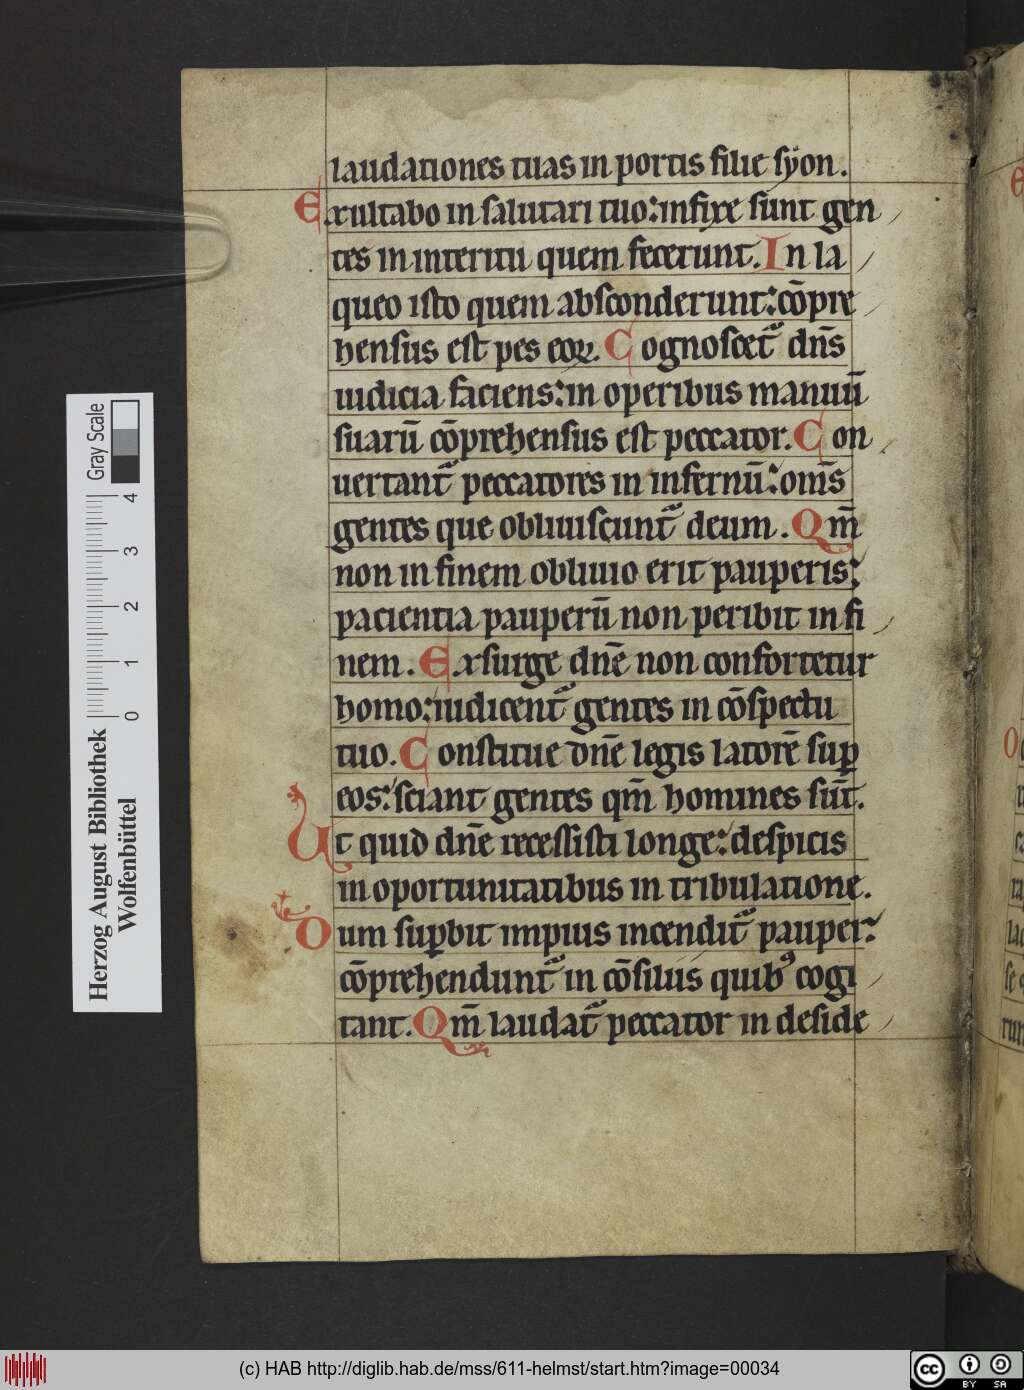 laudationes tuas in portis filie syon.
Exultabo in salutari tuo: infixe sunt gen
tes in interitu quem fecerunt. In la
queo isto quem absconderunt: cōpre
hensus est pes eoꝝ. Cognoscet᷑ dn̄s
iudicia faciens: in operibus manuū
suarū cōprehensus est peccator. Con
uertant᷑ peccatores in infernū: om̄s
gentes que obliuiscunt᷑ deum. Qm̄
non in finem obliuio erit pauperis:
pacientia pauperū non peribit in fi
nem. Exsurge dn̄e non confortetur
homo: iudicent᷑ gentes in cōspectu
tuo. Constitue dn̄e legis latorē suꝑ
eos: sciant gentes qm̄ homines sūt.
Ut quid dn̄e recessisti longe: despicis
in oportunitatibus in tribulatione.
Dum suꝑbit impius incendit᷑ pauper:
cōprehendunt᷑ in cōsiliis quibꝰ cogi
tant. Qm̄ laudat᷑ peccator in deside
Gray Scale
0 1 2 3 4
Herzog August Bibliothek
Wolfenbüttel
(c) HAB http://diglib.hab.de/mss/611-helmst/start.htm?image=00034
cc BY SA